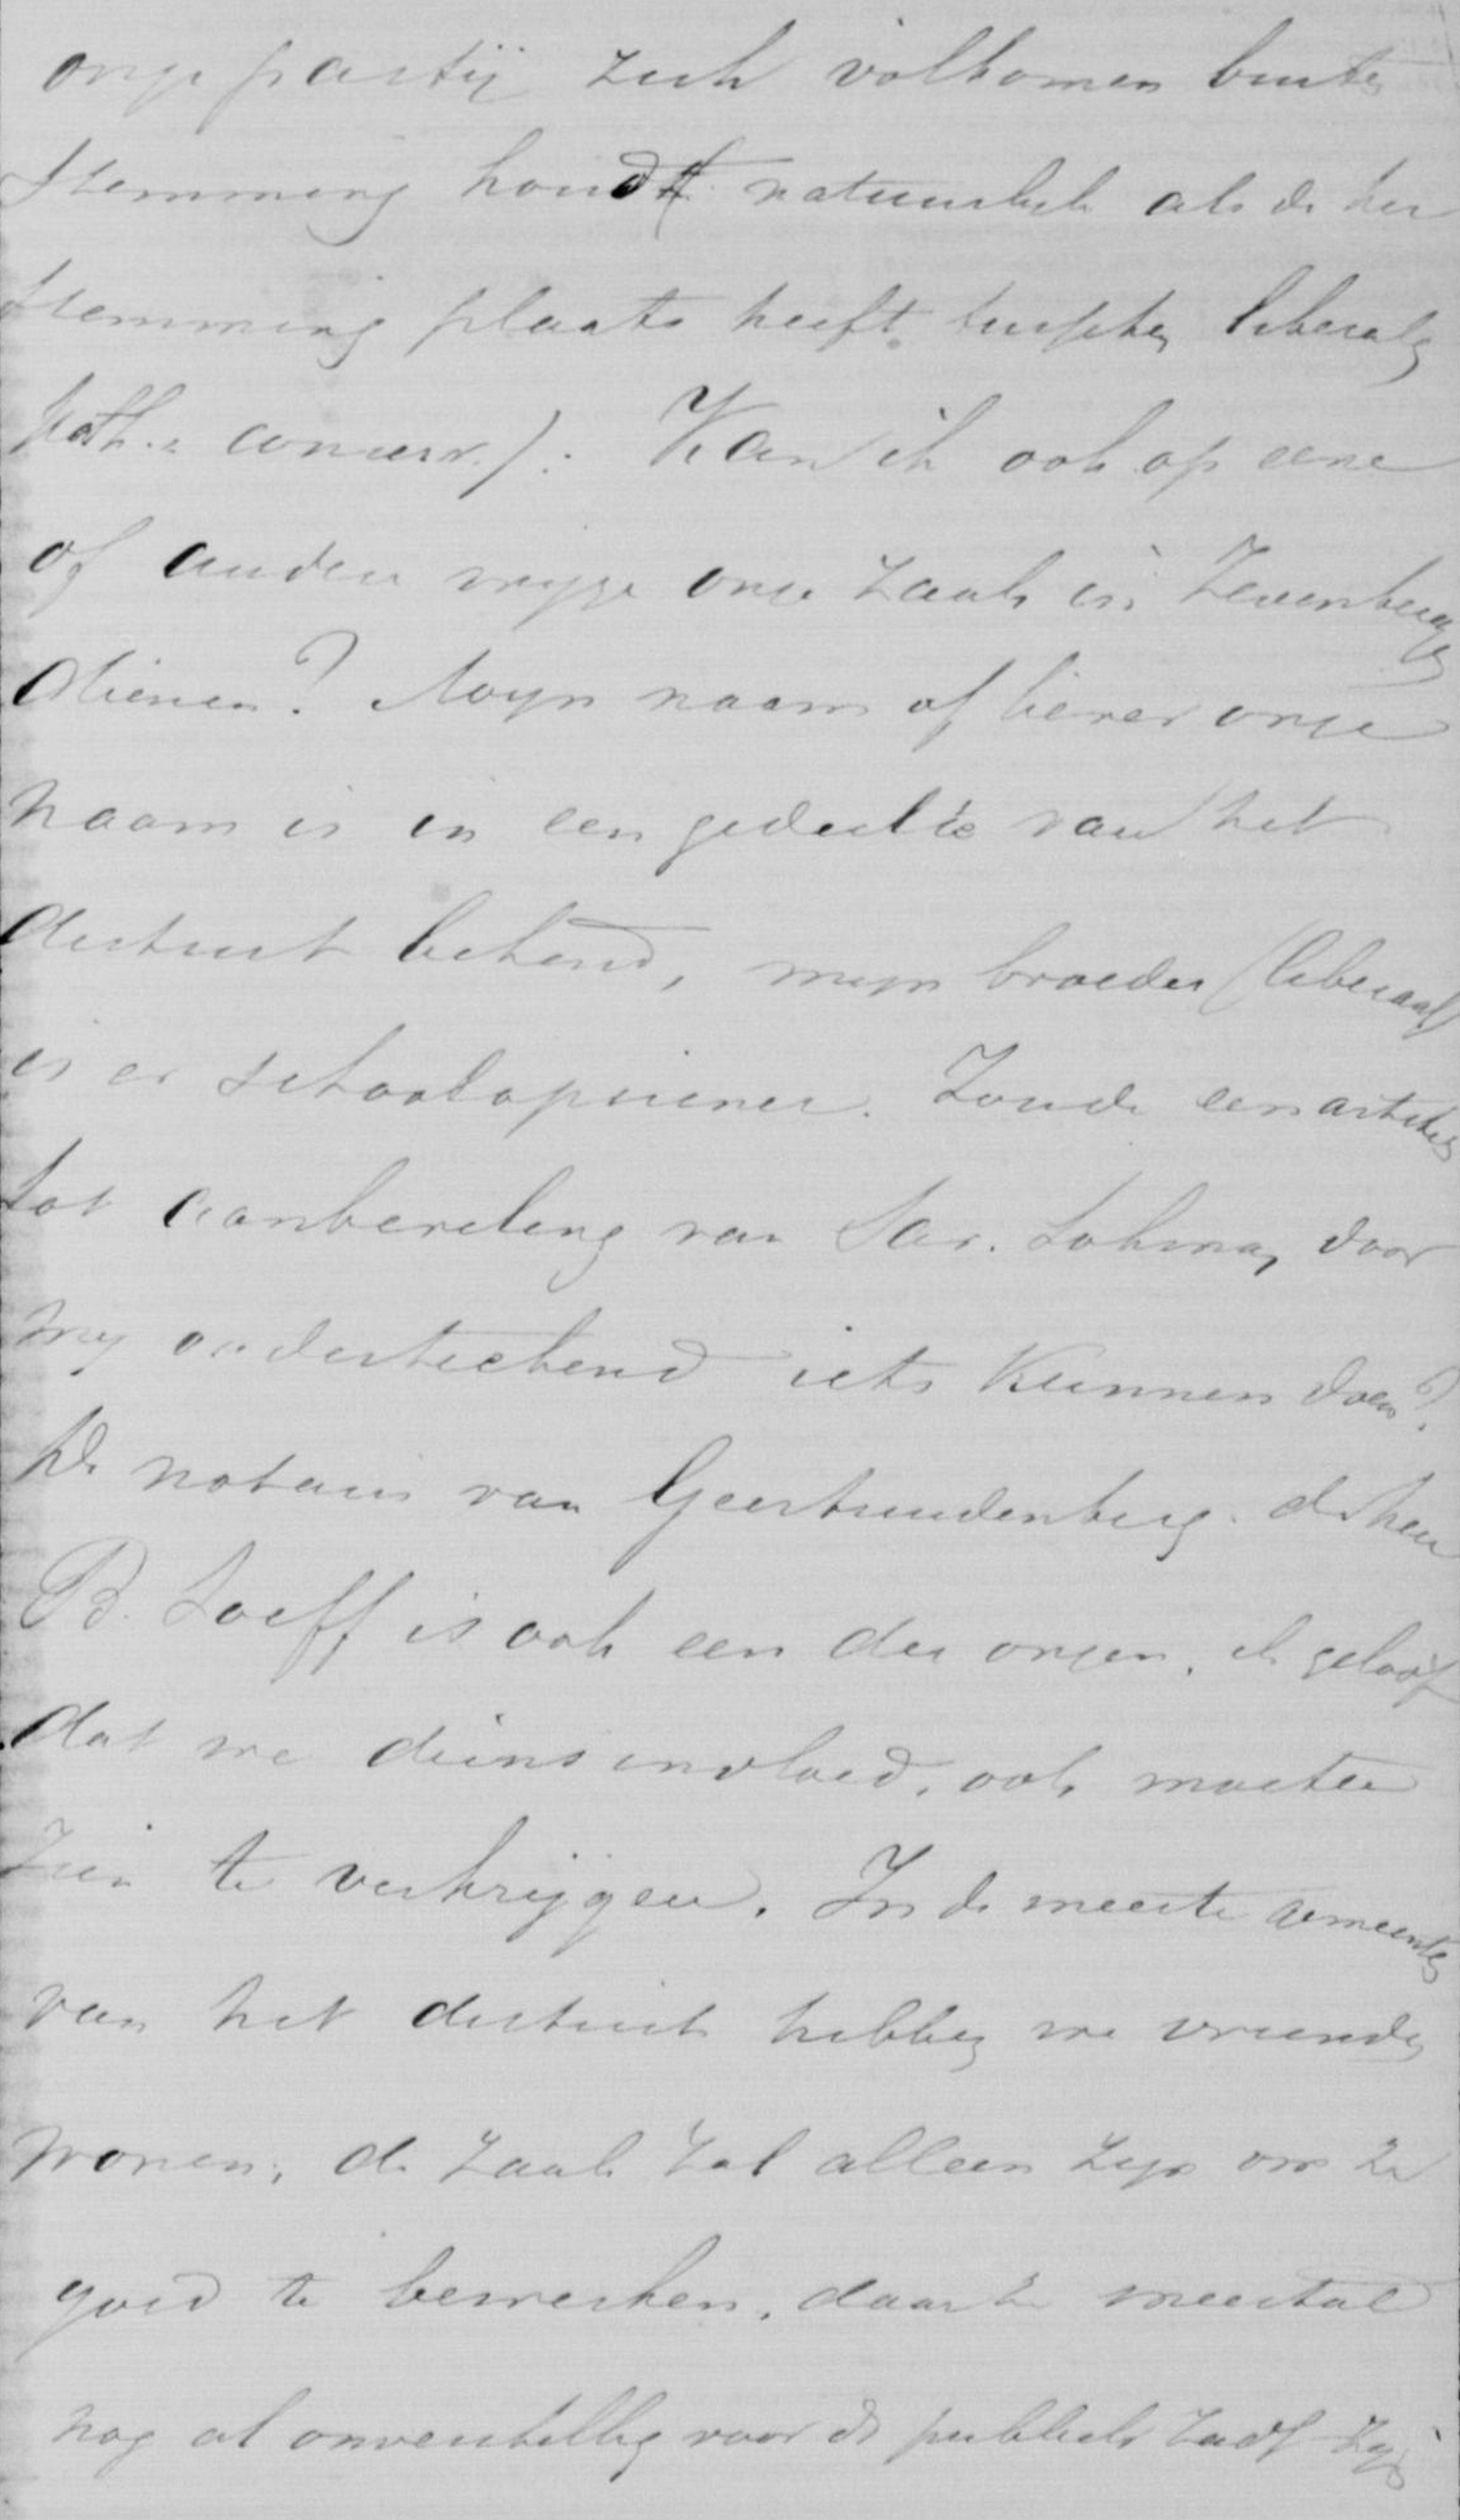 onze partij zich volkomen buiten
stemming houdt natuurlijk als de her
stemming plaats heeft tusschen liberalen
kath. conserv.). Kan ik ook op eene
of andere wijze onze zaak in Zevenbergen
dienen? Mijn naam of liever onze
naam is in een gedeelte van het
district bekend, mijn broeder (liberaal)
is er schoolopziener. Zoude een artikel
tot aanbeveling van Sav. Lohman door
mij onderteekend iets kunnen doen?
De notaris van Geertruidenberg de heer
B. Loeff is ook een der onzen, ik geloof
dat we diens invloed, ook moeten
zien te verkrijgen. In de meeste gemeenten
van het district hebben we vrienden
wonen, de zaak zal alleen zijn om ze
goed te bewerken, daar ze meestal
nog al onverschillig voor de publieke zaak zijn